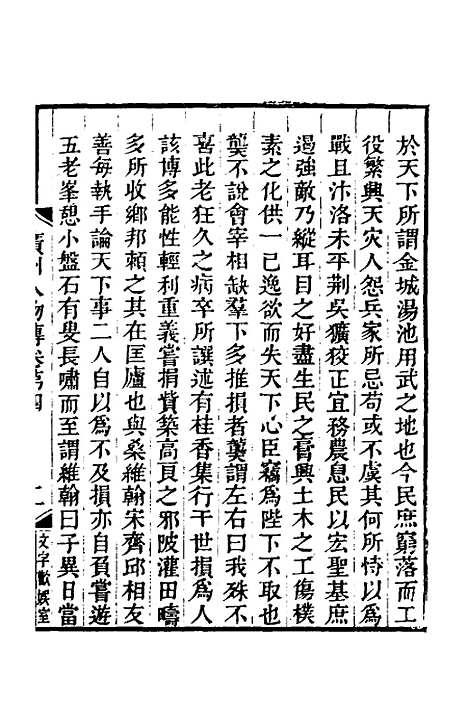 於天下所謂金城湯池用武之地也今民庶窮落而工
役繁興天灾人怨兵家所忌苟或不虞其何所恃以爲
戰且汴洛未平荆吳獷狡正宜務農息民以宏聖基庶
遏強敵乃縱耳目之好盡生民之膏興土木之工傷樸
素之化供一已逸欲而失天下心臣竊爲陛下不取也
龑不說會宰相缺羣下多推損者龑謂左右曰我殊不
喜此老狂久之病卒所譔述有桂香集行于世損爲人
該博多能性輕利重義嘗捐貲築高㒵之邪陂灌田疇
多所收鄉邦賴之其在匡廬也與桑維翰宋齊邱相友
善每執手論天下事二人自以爲不及損亦自負嘗遊
五老峯憩小盤石有叟長嘯而至謂維翰曰子異日當
廣州人物傳卷第四
二
文字歡娛室